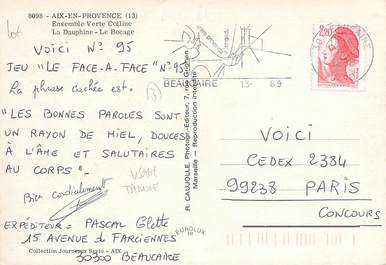 lot
8098 - AIX-EN-PROVENCE (13)
Ensemble Verte Colline
La Dauphine - Le Bocage
VOICI N° 95
JEU "LE FACE-A-FACE" N° 95.
La phrase cachée est.
"LES BONNES PAROLES SONT
UN RAYON DE MIEL, DOUCES
À L'ÂME ET SALUTAIRES
AU CORPS".
Bien cordialement
EXPÉDITEUR: PASCAL Glette
15 AVENUE du FARCIENNES
30300 BEAUCAIRE
Collection Journaux Savin - AIX
R. CAUJOLLE, Photogr.-Éditeur, 7, rue Grignan
Marseille - Reproduction interdite
EUROLUX
BEAUCAIRE
2,20
VOICI
CEDEX 2384
99238 PARIS
CONCOURS